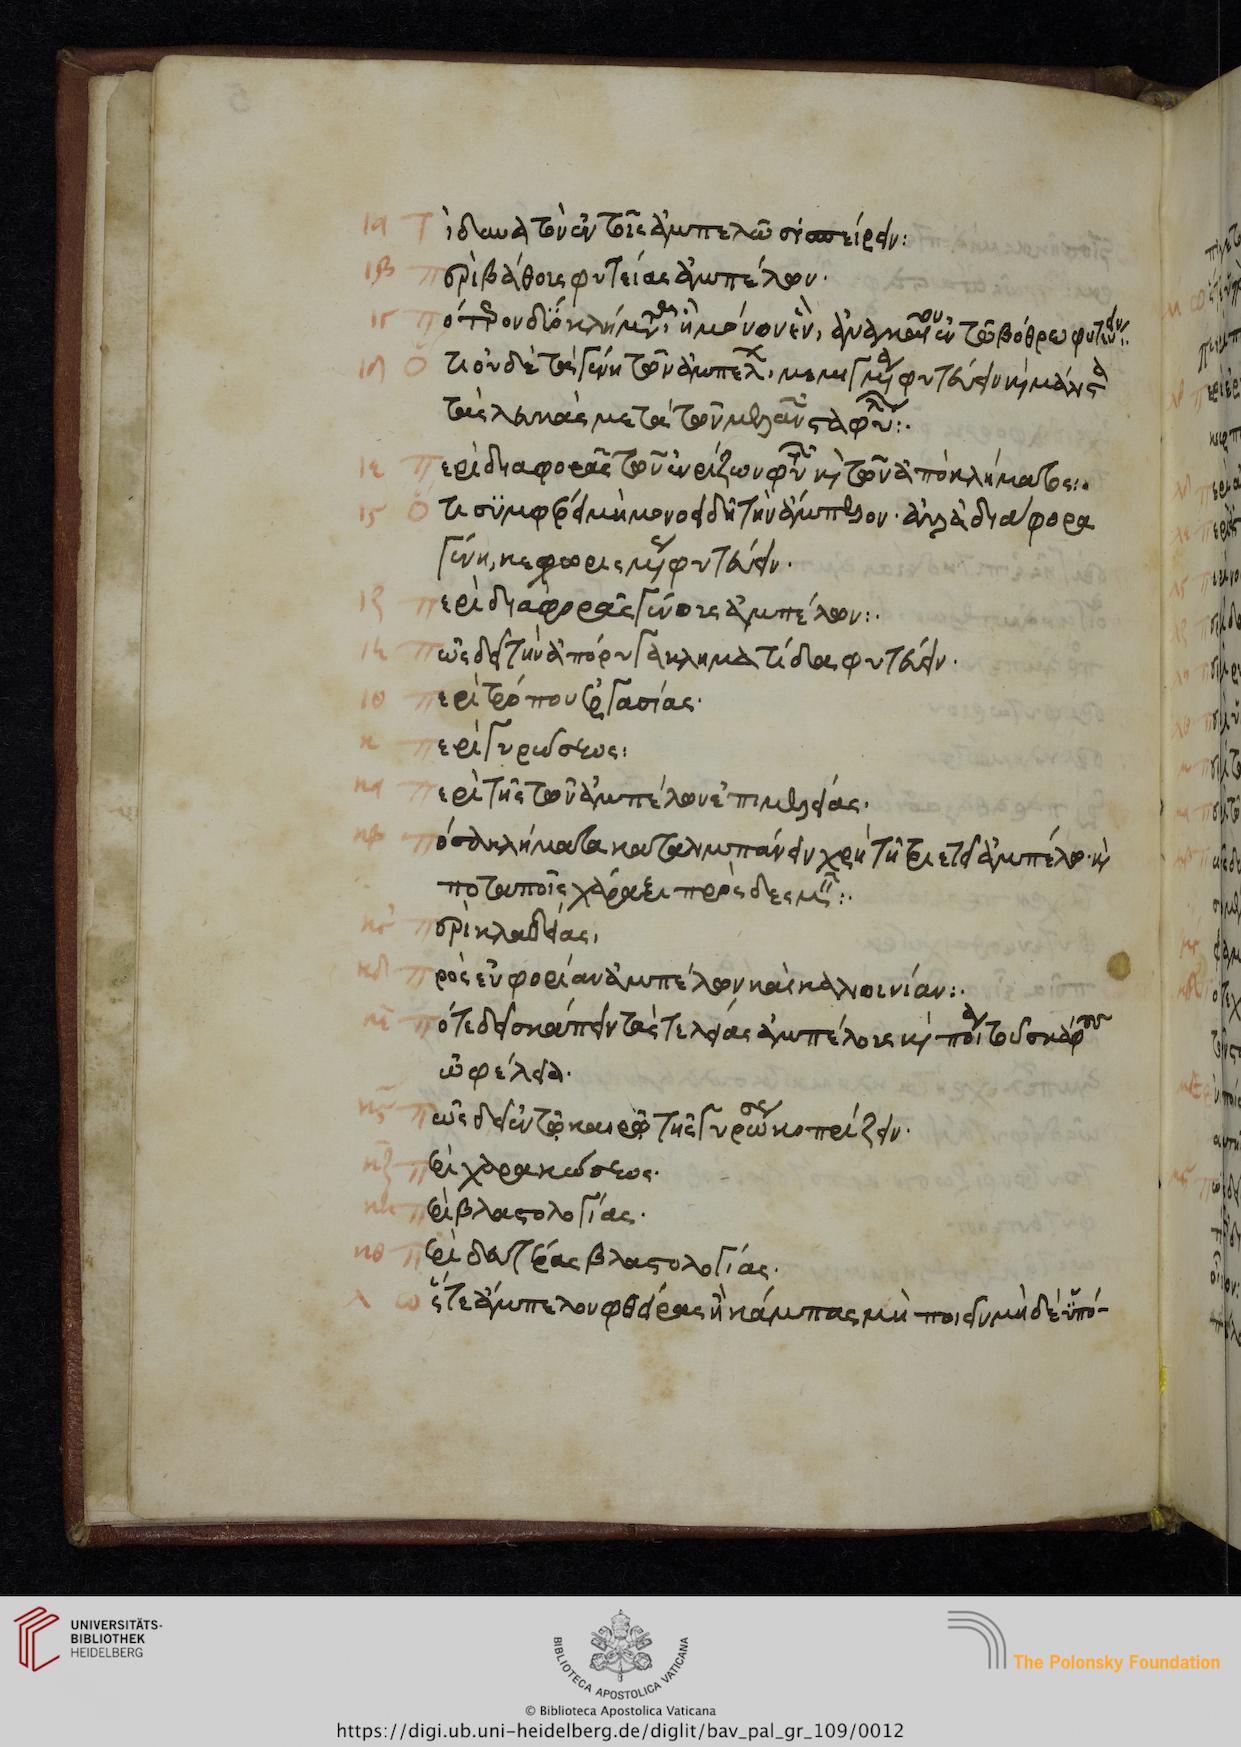 5
ια Τί δυνατὸν ἐν τοῖς ἀμπελῶσι σπείρειν:
ιβ περὶ βάθους φυτείας ἀμπέλων.
ιγ πότερον δύο κλήματα, ἢ μόνον ἓν, ἀναγκαῖον ἐν τῷ βόθρῳ φυτεύειν:
ιδ Ὅτι οὐ δεῖ τὰ γένη τῶν ἀμπέλων φυτεύειν καὶ μάλιστα
τὰς λευκὰς μετὰ τῶν μελαινῶν σταφυλῶν:.
ιε περὶ διαφορᾶς τῶν ἐνρίζων φυτῶν καὶ τῶν ἀπὸ κλήματος:.
ις Ὅτι συμφέρει μὴ μονοειδῆ τὴν ἄμπελον. ἀλλὰ διάφορα
γένη, κεχωρισμένως φυτεύειν.
ιζ περὶ διαφορᾶς γένους ἀμπέλων:.
ιη πῶς δεῖ τὴν ἀπόρυγα κληματίδας φυτεύειν.
ιθ περὶ τρόπου ἐργασίας.
κ περὶ γυρώσεως:
κα περὶ τῆς τῶν ἀμπέλων ἐπιμελείας.
κβ πόσα κλήματα καταλιμπάνειν χρὴ τῇ τριετεῖ ἀμπέλῳ. καὶ
ποταποῖς χάραξι πρὸς δεσμεῖν:.
κγ περὶ κλαδείας,
κδ πρὸς εὐφορίαν ἀμπέλων καὶ καλλοινίαν:.
κε πότε δεῖ σκάπτειν τὰς τελείας ἀμπέλους καὶ τοῦ σκάφου
ὠφέλεια.
κς πῶς δεῖ ἐν τῷ καιρῷ τῆς γυρώσεως κοπρίζειν.
κζ περὶ χαρακώσεως.
κη περὶ βλαστολογίας.
κθ περὶ δευτέρας βλαστολογίας.
λ ὥστε ἄμπελον φθείρας ἢ κάμπας μὴ ποιεῖν μηδὲ ὑπό-
UNIVERSITÄTS-
BIBLIOTHEK
HEIDELBERG
BIBLIOTECA APOSTOLICA VATICANA
The Polonsky Foundation
© Biblioteca Apostolica Vaticana
https://digi.ub.uni-heidelberg.de/diglit/bav_pal_gr_109/0012